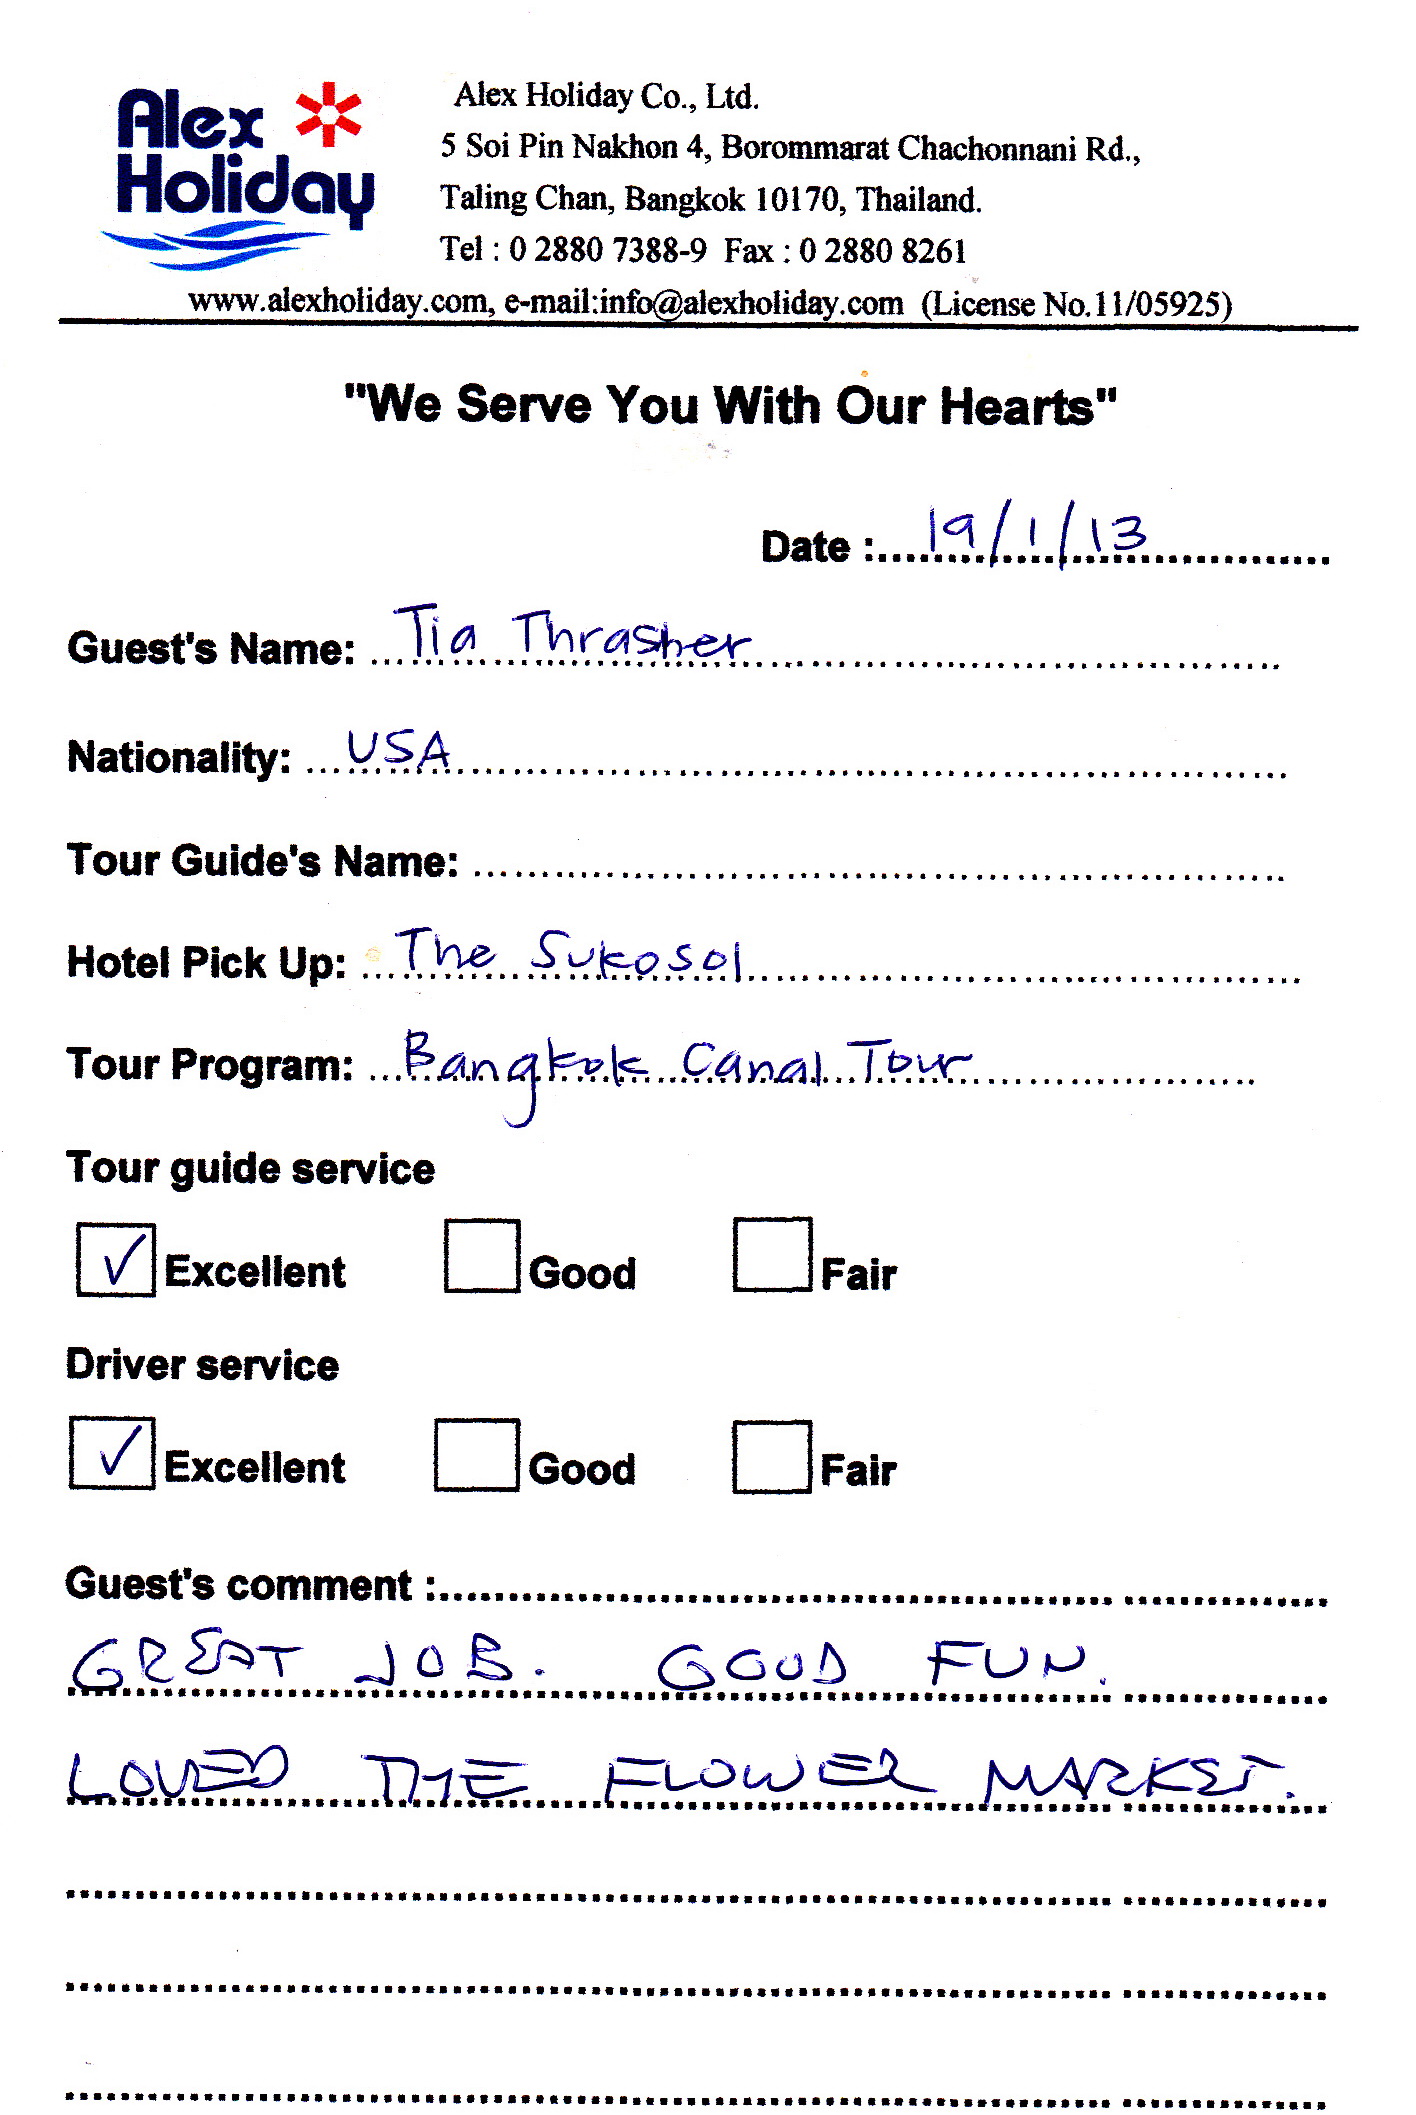 Alex Holiday
Alex Holiday Co., Ltd.
5 Soi Pin Nakhon 4, Borommarat Chachonnani Rd.,
Taling Chan, Bangkok 10170, Thailand.
Tel : 0 2880 7388-9 Fax : 0 2880 8261
www.alexholiday.com, e-mail:info@alexholiday.com (License No.11/05925)
"We Serve You With Our Hearts"
Date : 19/1/13
Guest's Name: Tia Thrasher
Nationality: USA
Tour Guide's Name:
Hotel Pick Up: The Sukosol
Tour Program: Bangkok Canal Tour
Tour guide service
✓ Excellent Good Fair
Driver service
✓ Excellent Good Fair
Guest's comment :
GREAT JOB. GOOD FUN.
LOVED THE FLOWER MARKET.